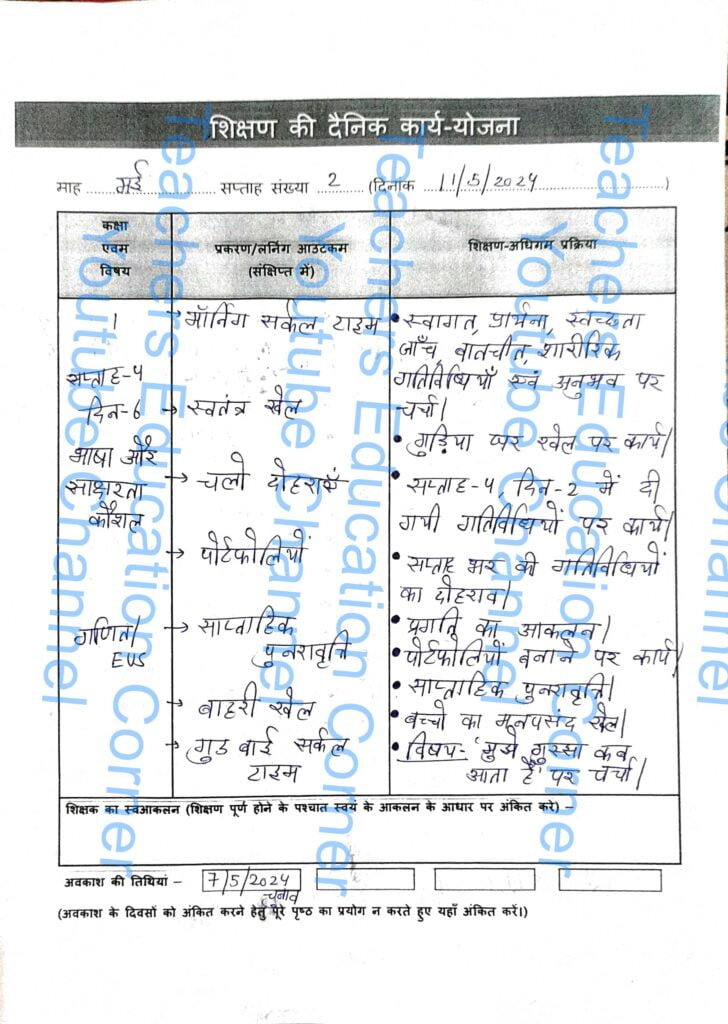 शिक्षण की दैनिक कार्य-योजना
माह मई सप्ताह संख्या 2 (दिनाक 11/5/2024)
कक्षा
एवम
विषय
प्रकरण/लर्निग आउटकम
(संक्षिप्त में)
शिक्षण-अधिगम प्रक्रिया
1
सप्ताह-4
दिन-6
भाषा और
साक्षरता
कौशल
गणित/
EVS
→ मॉर्निंग सर्कल टाइम
→ स्वतंत्र खेल
→ चलो दोहराएँ
→ पोर्टफोलियों
→ साप्ताहिक
पुनरावृत्ति
→ बाहरी खेल
→ गुड बाई सर्कल
टाइम
• स्वागत, प्रार्थना, स्वच्छता
जाँच, बातचीत, शारीरिक
गतिविधियाँ एवं अनुभव पर
चर्चा।
• गुड़िया घर खेल पर कार्य।
• सप्ताह-4, दिन-2 में दी
गयी गतिविधियों पर कार्य।
• सप्ताह भर की गतिविधियों
का दोहराव।
• प्रगति का आकलन।
• पोर्टफोलियों बनाने पर कार्य।
• साप्ताहिक पुनरावृत्ति।
• बच्चो का मनपसंद खेल।
• विषय- 'मुझे गुस्सा कब
आता है' पर चर्चा।
शिक्षक का स्वआकलन (शिक्षण पूर्ण होने के पश्चात स्वयं के आकलन के आधार पर अंकित करे) –
अवकाश की तिथियां – 7/5/2024
चुनाव
(अवकाश के दिवसों को अंकित करने हेतु पूरे पृष्ठ का प्रयोग न करते हुए यहाँ अंकित करें।)
Teachers Education Corner
Youtube Channel
Teachers Education Corner
Youtube Channel
Teachers Education Corner
Youtube Channel